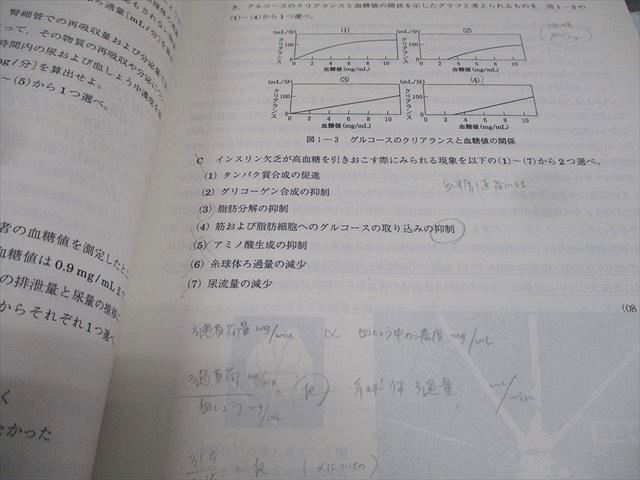 の過量(mL/分)を
腎細管での再吸収量および分泌量
って，その物質の再吸収や分泌
時間内の尿および血しょう中濃度を
mg/分]を算出せよ。
～(5)から1つ選べ。
者の血糖値を測定したと
血糖値は0.9mg/mLま
の排泄量と尿量の推移
からそれぞれ1つ選べ
く
なかった
3. グルコースのクリアランスと血糖値の関係を示したグラフと考えられるものを，図1－3の
(1)～(4)から1つ選べ。
(mL/分) (1) (mL/分) (2)
クリアランス 100 クリアランス 100
0 2 4 6 8 10 0 2 4 6 8 10
血糖値(mg/mL) 血糖値(mg/mL)
(mL/分) (3) (mL/分) (4)
クリアランス 100 クリアランス 100
0 2 4 6 8 10 0 2 4 6 8 10
血糖値(mg/mL) 血糖値(mg/mL)
図1－3 グルコースのクリアランスと血糖値の関係
C インスリン欠乏が高血糖を引きおこす際にみられる現象を以下の(1)～(7)から2つ選べ。
(1) タンパク質合成の促進
(2) グリコーゲン合成の抑制
(3) 脂肪分解の抑制
(4) 筋および脂肪細胞へのグルコースの取り込みの抑制
(5) アミノ酸生成の抑制
(6) 糸球体ろ過量の減少
(7) 尿流量の減少
(08
ろ過負荷量 mg/min ∝ 血しょう中の濃度 mg/mL
ろ過負荷 mg/min = k 糸球体ろ過量 mL/min
血しょう mg/mL
= k